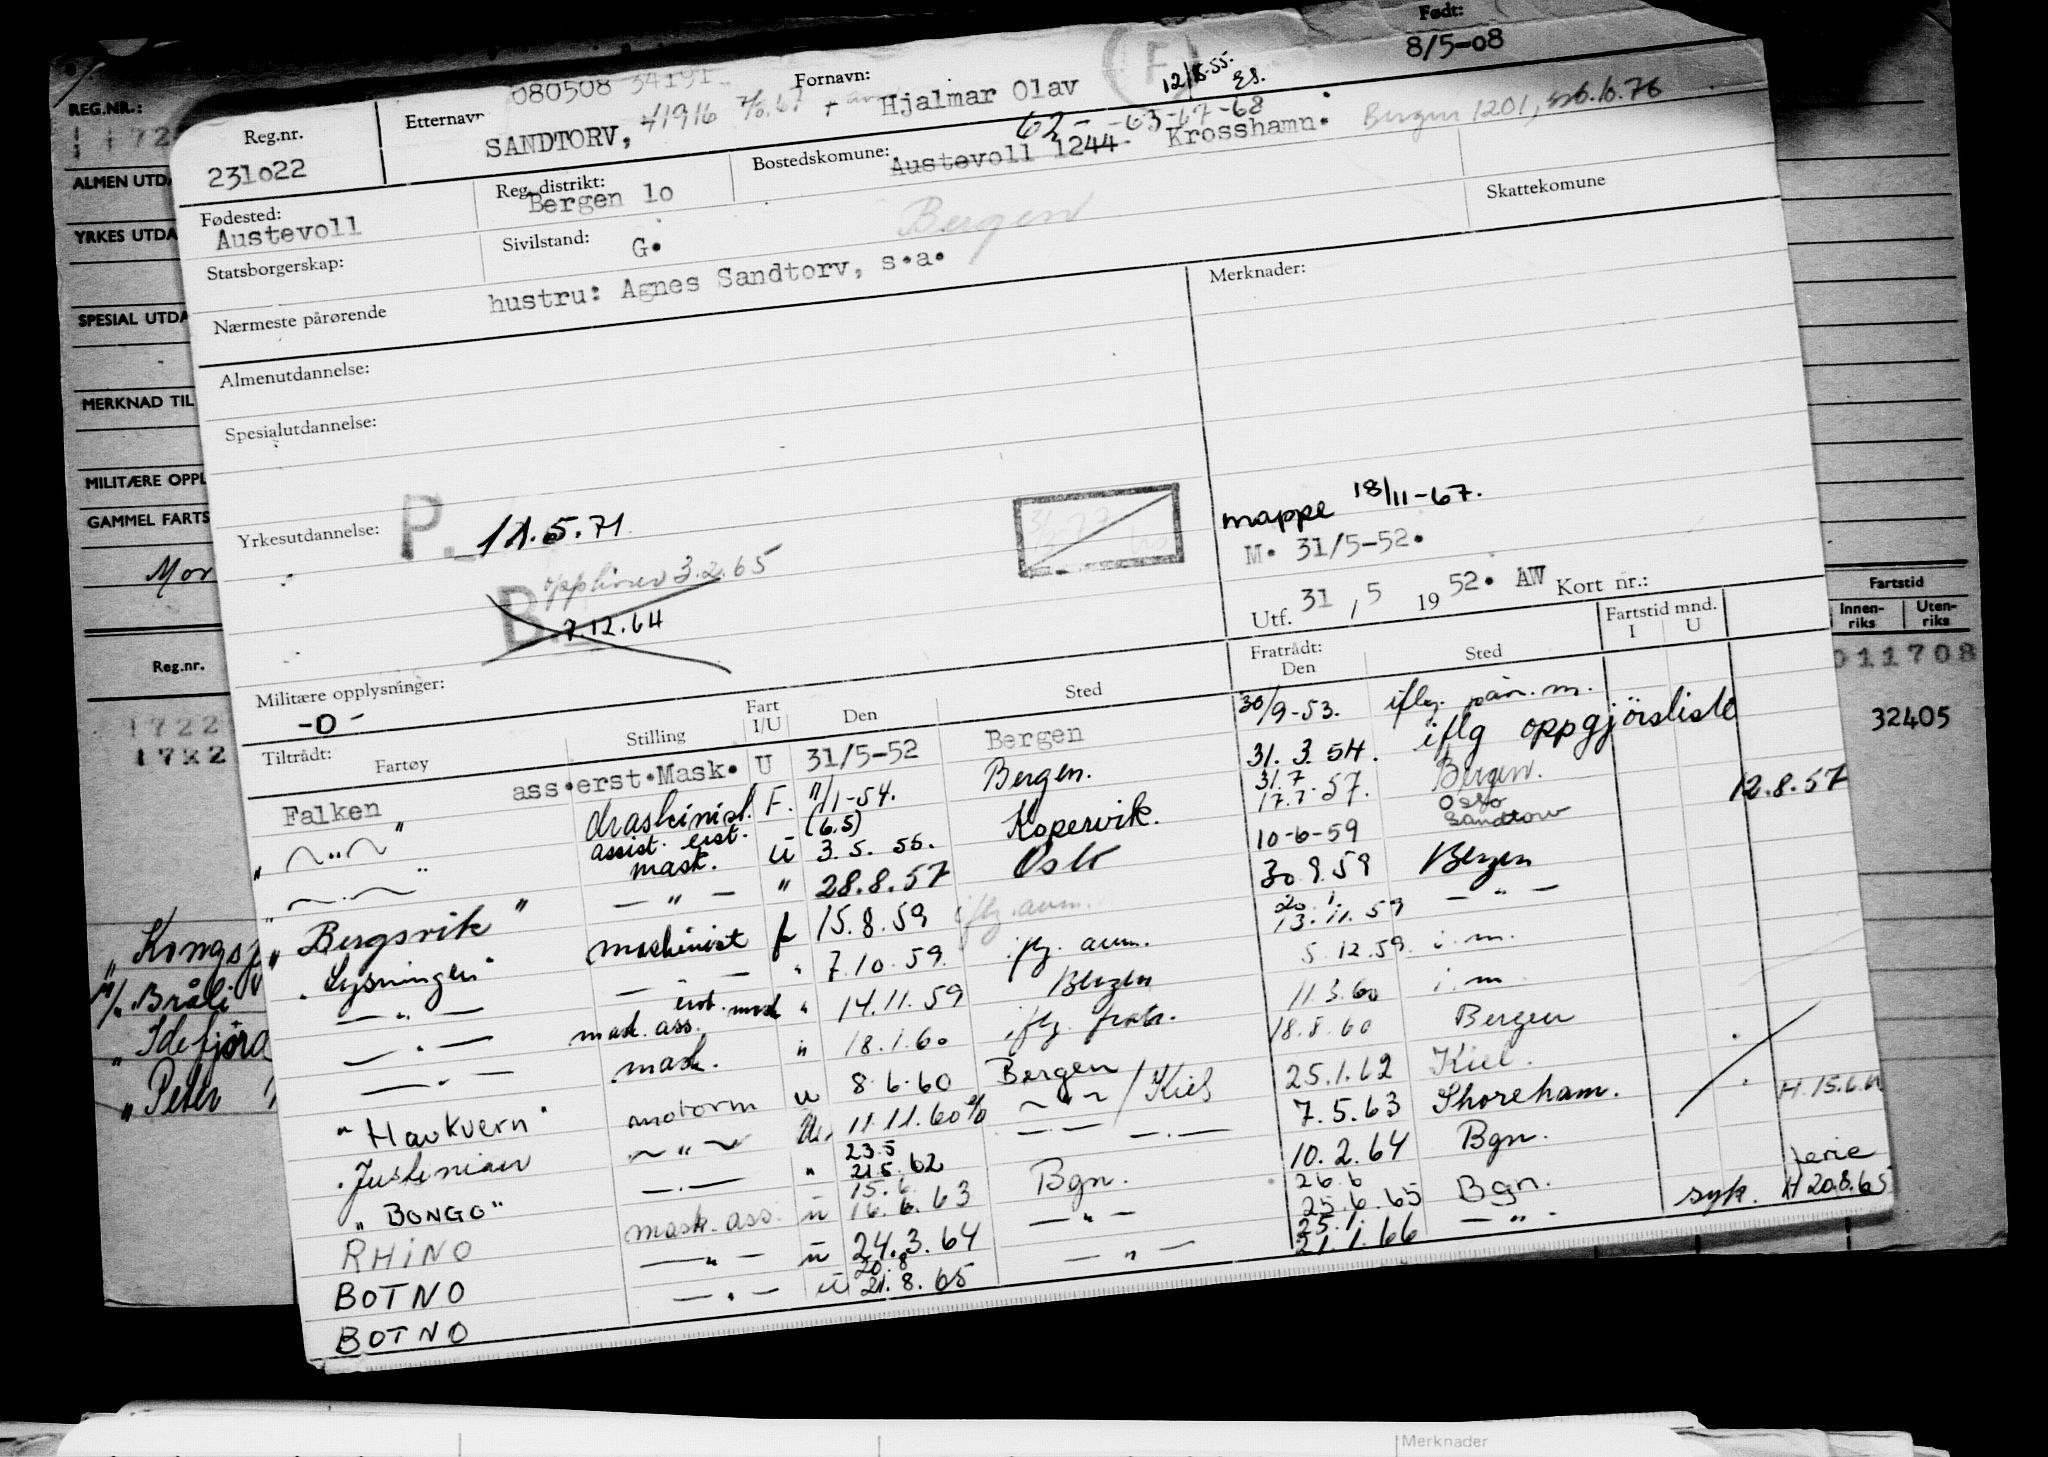 Født:
8/5-08
REG.NR.:
Reg.nr.
231o22
Etternavn
080508 34191
SANDTORV, 41916
Fornavn:
Hjalmar Olav
12/8.55.
62 - -63-67-68
Fødested:
Austevoll
Reg. distrikt:
Bergen 1o
Bostedskommune:
Austevoll 1244 Krosshamn.
Bergen 1201,
ALMEN UTDA
YRKES UTDA
SPESIAL UTDA
MERKNAD TIL
MILITÆRE OPPL
GAMMEL FARTS
Mor
Reg.nr.
Statsborgerskap:
Sivilstand:
G.
Bergen
Skattekomune
Nærmeste pårørende
hustru: Agnes Sandtorv, s.a.
Merknader:
Almenutdannelse:
Spesialutdannelse:
Yrkesutdannelse:
P. 11.5.71
B. opphevet 3.2.65
7.12.64
mappe 18/11-67.
M. 31/5-52.
Utf. 31 , 5 19 52. AW Kort nr.:
Militære opplysninger:
-0-
Tiltrådt:
Fartøy
Stilling
Fart I/U
Den
Sted
Fratrådt:
Den
Sted
Fartstid mnd.
I U
Fartstid
Innen-riks
Uten-riks
011708
32405
1722
17K2
Falken ass.erst.Mask. U 31/5-52 Bergen 30/9-53. iflg. pån.m.
" ~"~ " Maskinist. F. 11/1-54. Bergen. 31.3.54. iflg oppgjörsliste
" ~.~ " assist. erst. mask. U (6.5) 3.5.55. Kopervik. 31.7 17.7.57. Bergen. Oslo 12.8.57
— " — " 28.8.57 Oslo 10-6-59 Sandtorv
" Bergsvik " maskinist f 15.8.59 iflg. anm. 30.9.59 Bergen
"Lysningen" — — " 7.10.59 iflg. anm. 20.1. 13.11.59 — " —
— " — erst. mask mask. ass. " 14.11.59 Bergen 5.12.59. i.m.
— . — mask. " 18.1.60 iflg. fratr. 11.3.60 i.m.
" Haukvern " motorm u 8.6.60 Bergen 18.8.60 Bergen
"Justinian ~"~ 11.11.60 ~"~ / Kiel 25.1.62 Kiel.
" BONGO" — . — " 23.5 21.5.62 — . — 7.5.63 Shoreham. H. 15.6.
RHINO mask. ass. u 15.6. 16.6.63 Bgn. 10.2.64 Bgn.
BOTNO — " — u 24.3.64 — " — 26.6 25.6.65 Bgn. syk. ferie H 20.8.65
BOTNO — . — u 20.8 21.8.65 — " — 25.1. 21.1.66 — " —
" Kongsf
M/. Bråli
" Idefjord
" Peter
Merknader